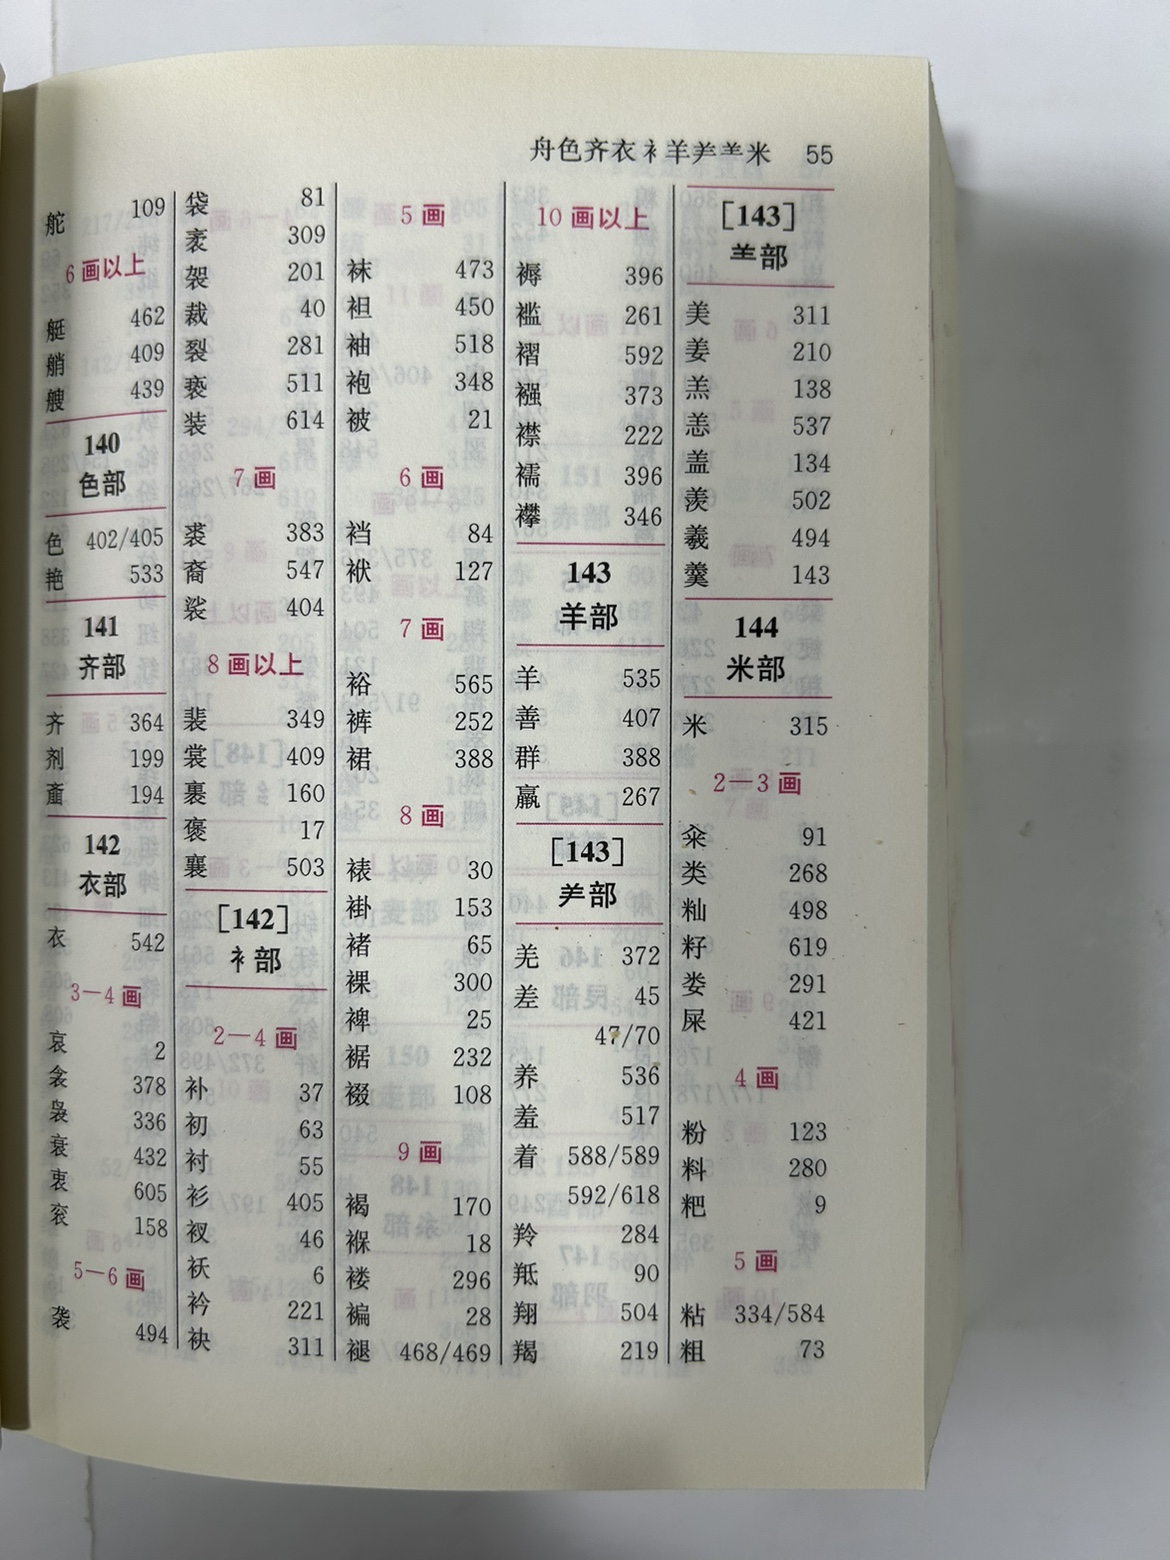 舟色齐衣衤羊⺶⺷米 55
舵 109
6画以上
艇 462
艄 409
艘 439
140
色部
色 402/405
艳 533
141
齐部
齐 364
剂 199
齑 194
142
衣部
衣 542
3—4画
哀 2
衾 378
袅 336
衰 432
衷 605
衮 158
5—6画
袭 494
袋 81
袤 309
袈 201
裁 40
裂 281
亵 511
装 614
7画
裘 383
裔 547
裟 404
8画以上
裴 349
裳 409
裹 160
褒 17
襄 503
[142]
衤部
2—4画
补 37
初 63
衬 55
衫 405
衩 46
袄 6
衿 221
袂 311
5画
袜 473
袒 450
袖 518
袍 348
被 21
6画
裆 84
袱 127
7画
裕 565
裤 252
裙 388
8画
裱 30
褂 153
褚 65
裸 300
裨 25
裾 232
裰 108
9画
褐 170
褓 18
褛 296
褊 28
褪 468/469
10画以上
褥 396
褴 261
褶 592
襁 373
襟 222
襦 396
襻 346
143
羊部
羊 535
善 407
群 388
羸 267
[143]
⺶部
羌 372
差 45
47/70
养 536
羞 517
着 588/589
592/618
羚 284
羝 90
翔 504
羯 219
[143]
⺷部
美 311
姜 210
羔 138
恙 537
盖 134
羡 502
羲 494
羹 143
144
米部
米 315
2—3画
籴 91
类 268
籼 498
籽 619
娄 291
屎 421
4画
粉 123
料 280
粑 9
5画
粘 334/584
粗 73